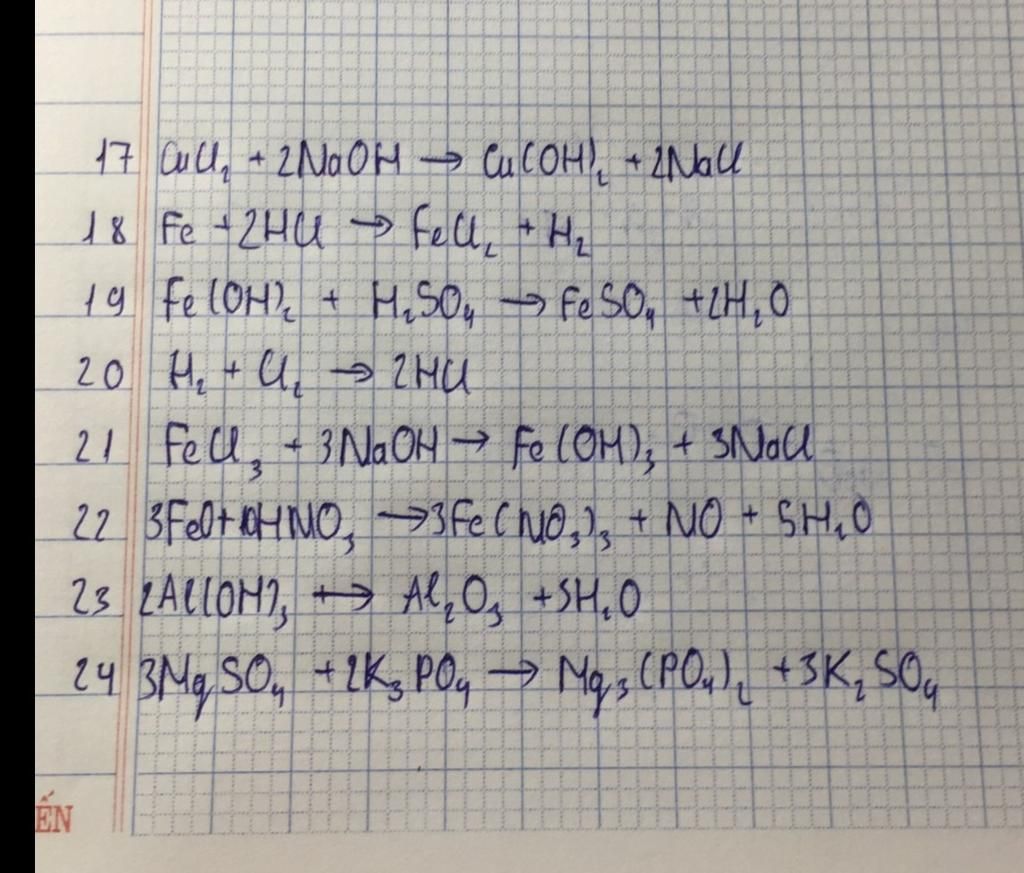 17 CuCl₂ + 2NaOH → Cu(OH)₂ + 2NaCl
18 Fe + 2HCl → FeCl₂ + H₂
19 Fe(OH)₂ + H₂SO₄ → FeSO₄ + 2H₂O
20 H₂ + Cl₂ → 2HCl
21 FeCl₃ + 3NaOH → Fe(OH)₃ + 3NaCl
22 3FeO + 10HNO₃ → 3Fe(NO₃)₃ + NO + 5H₂O
23 2Al(OH)₃ ⟷ Al₂O₃ + 3H₂O
24 3MgSO₄ + 2K₃PO₄ → Mg₃(PO₄)₂ + 3K₂SO₄
ẾN